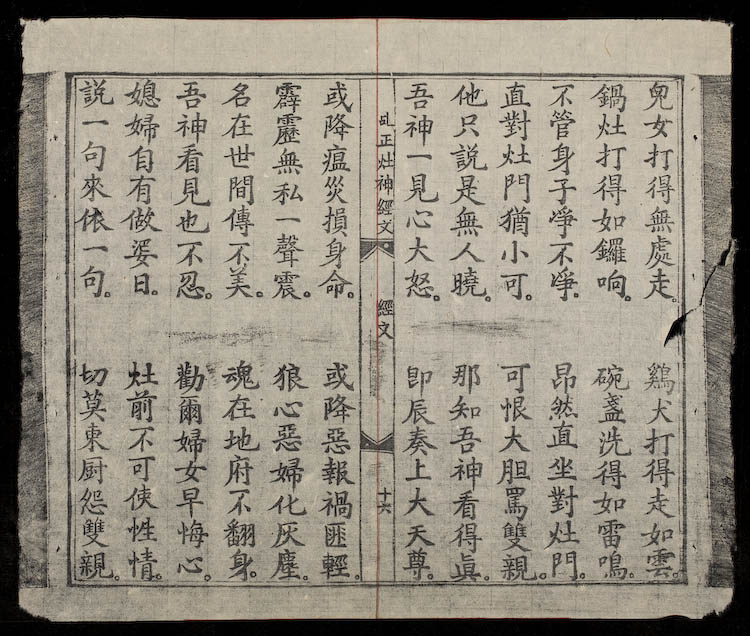 兒女打得無處走。 鷄犬打得走如雲。
鍋灶打得如鑼响。 碗盞洗得如雷鳴。
不管身子淨不淨。 昂然直坐對灶門。
直對灶門猶小可。 可恨大胆罵雙親。
他只說是無人曉。 那知吾神看得眞。
吾神一見心大怒。 即辰奏上大天尊。
乩正灶神經文 經文 十六
或降瘟災損身命。 或降惡報禍匪輕。
霹靂無私一聲震。 狼心惡婦化灰塵。
名在世間傳不美。 魂在地府不翻身。
吾神看見也不忍。 勸爾婦女早悔心。
媳婦自有做婆日。 灶前不可使性情。
説一句來依一句。 切莫東厨怨雙親。